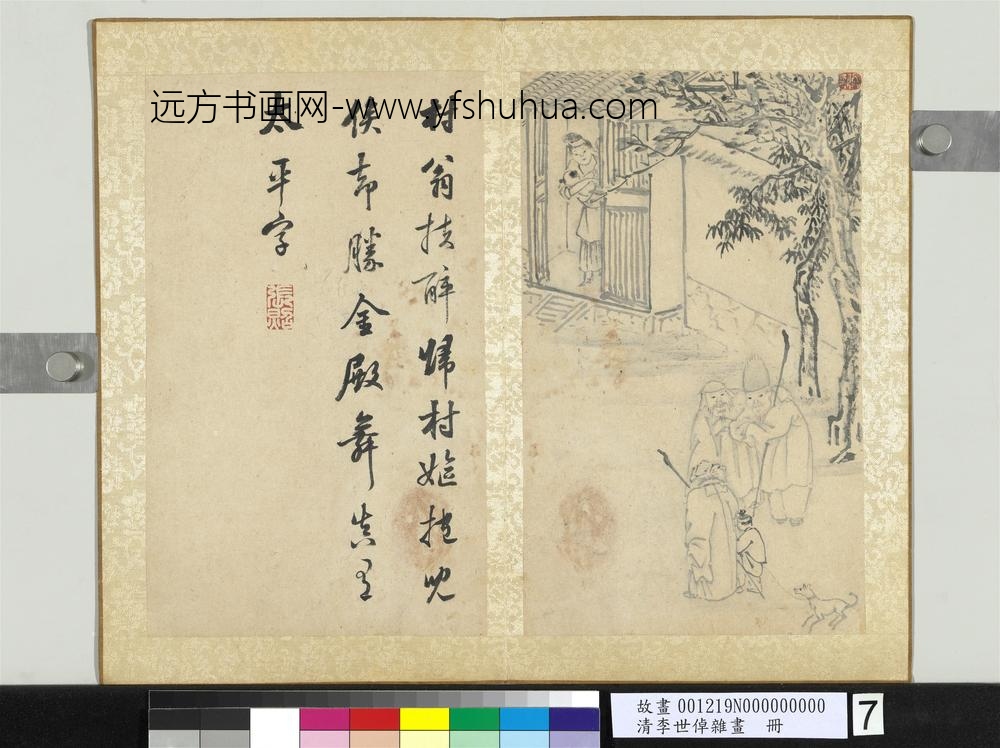 远方书画网-www.yfshuhua.com
村翁扶醉歸村嫗抱兒
俟却勝金殿舞真
太平字
張照
故畫 001219N000000000
清李世倬雜畫 冊
7